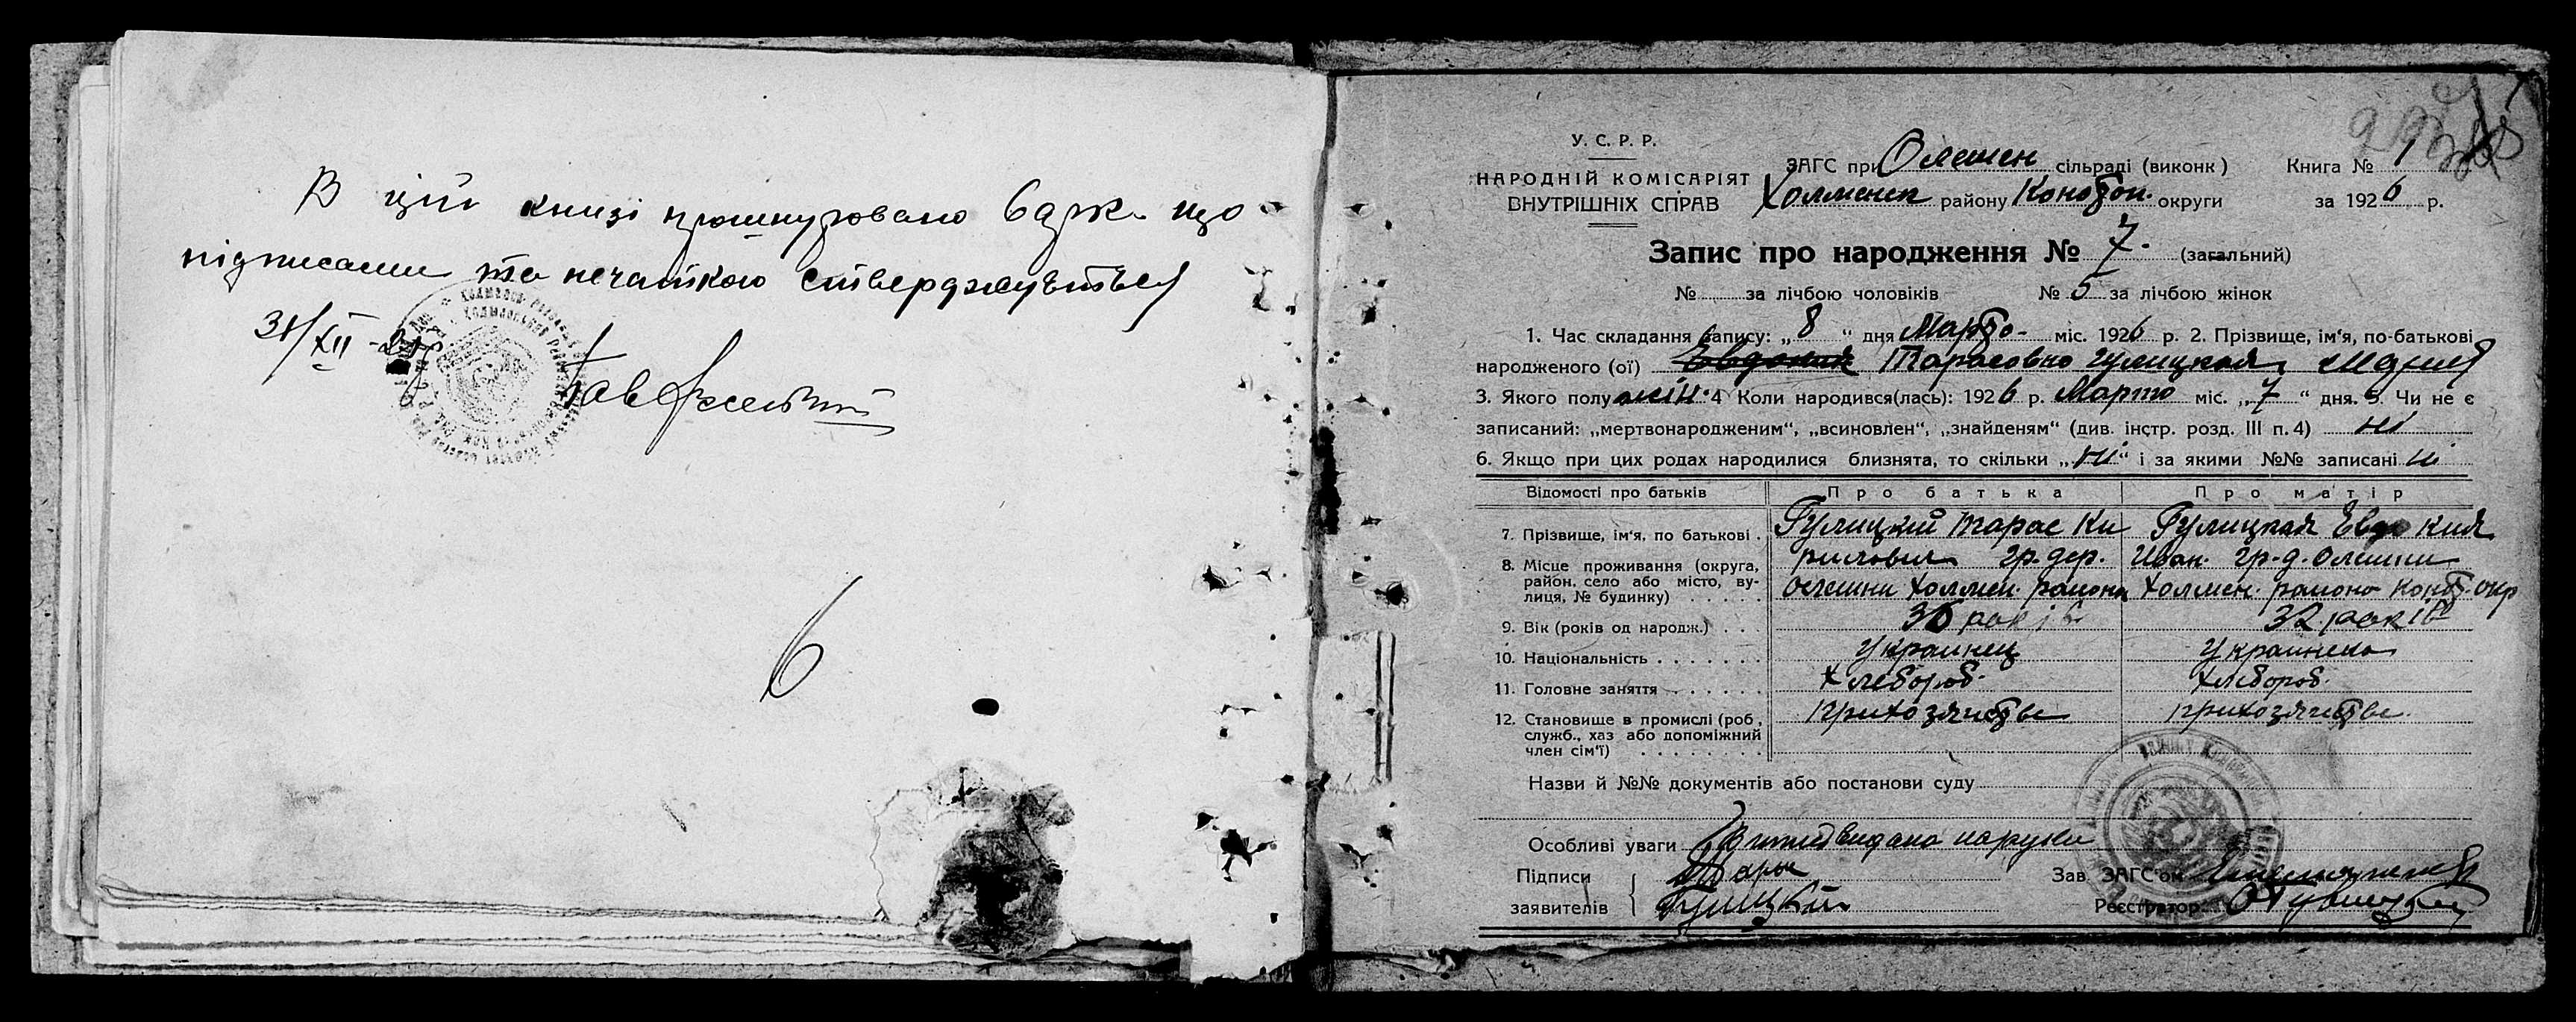 В цій книзі прошнуровано 6 арк. що
підписами та печаткою стверджується
31/XII-25
6
У. С. Р. Р.
НАРОДНІЙ КОМІСАРІЯТ
ВНУТРІШНІХ СПРАВ
ЗАГС при Олешен сільраді (виконк) Книга № 1
Холменск району Конотоп. округи за 1926 р.
Запис про народження № 7. (загальний)
№ за лічбою чоловіків № 5 за лічбою жінок
1. Час складання запису: „8“ дня Марта міс. 1926 р. 2. Прізвище, ім'я, по-батькові
народженого (ої) Евдокия Тарасовна Гулицкая
3. Якого полу жін. 4 Коли народився(лась): 1926 р. Марта міс. „7“ дня. 5. Чи не є
записаний: „мертвонародженим“, „всиновлен“, „знайденям“ (див. інстр. розд. III п. 4) ні
6. Якщо при цих родах народилися близнята, то скільки „ні“ і за якими №№ записані ні
Відомості про батьків Про батька Про матір
7. Прізвище, ім'я, по батькові . Гулицкий Тарас Ки Гулицкая Евдокия
8. Місце проживання (округа, район, село або місто, вулиця, № будинку) рилович гр. дер. Иван. гр-д. Олешни
Олешни Холмен. района Холмен. района Коно​т. окр
9. Вік (років од народж.) . . . 36 років 32 років
10. Національність . . . . . . . Украинец Украинека
11. Головне заняття . . . . . . Хлебороб. Хлебороб.
12. Становище в промислі (роб, служб., хаз або допоміжний член сім'ї) . . . . . . . . прихозяистве прихозяистве.
Назви й №№ документів або постанови суду
Особливі уваги Витяг видана наруки
Підписи Тарас Зав. ЗАГС'ом
заявителів Гулицкий Реєстратор